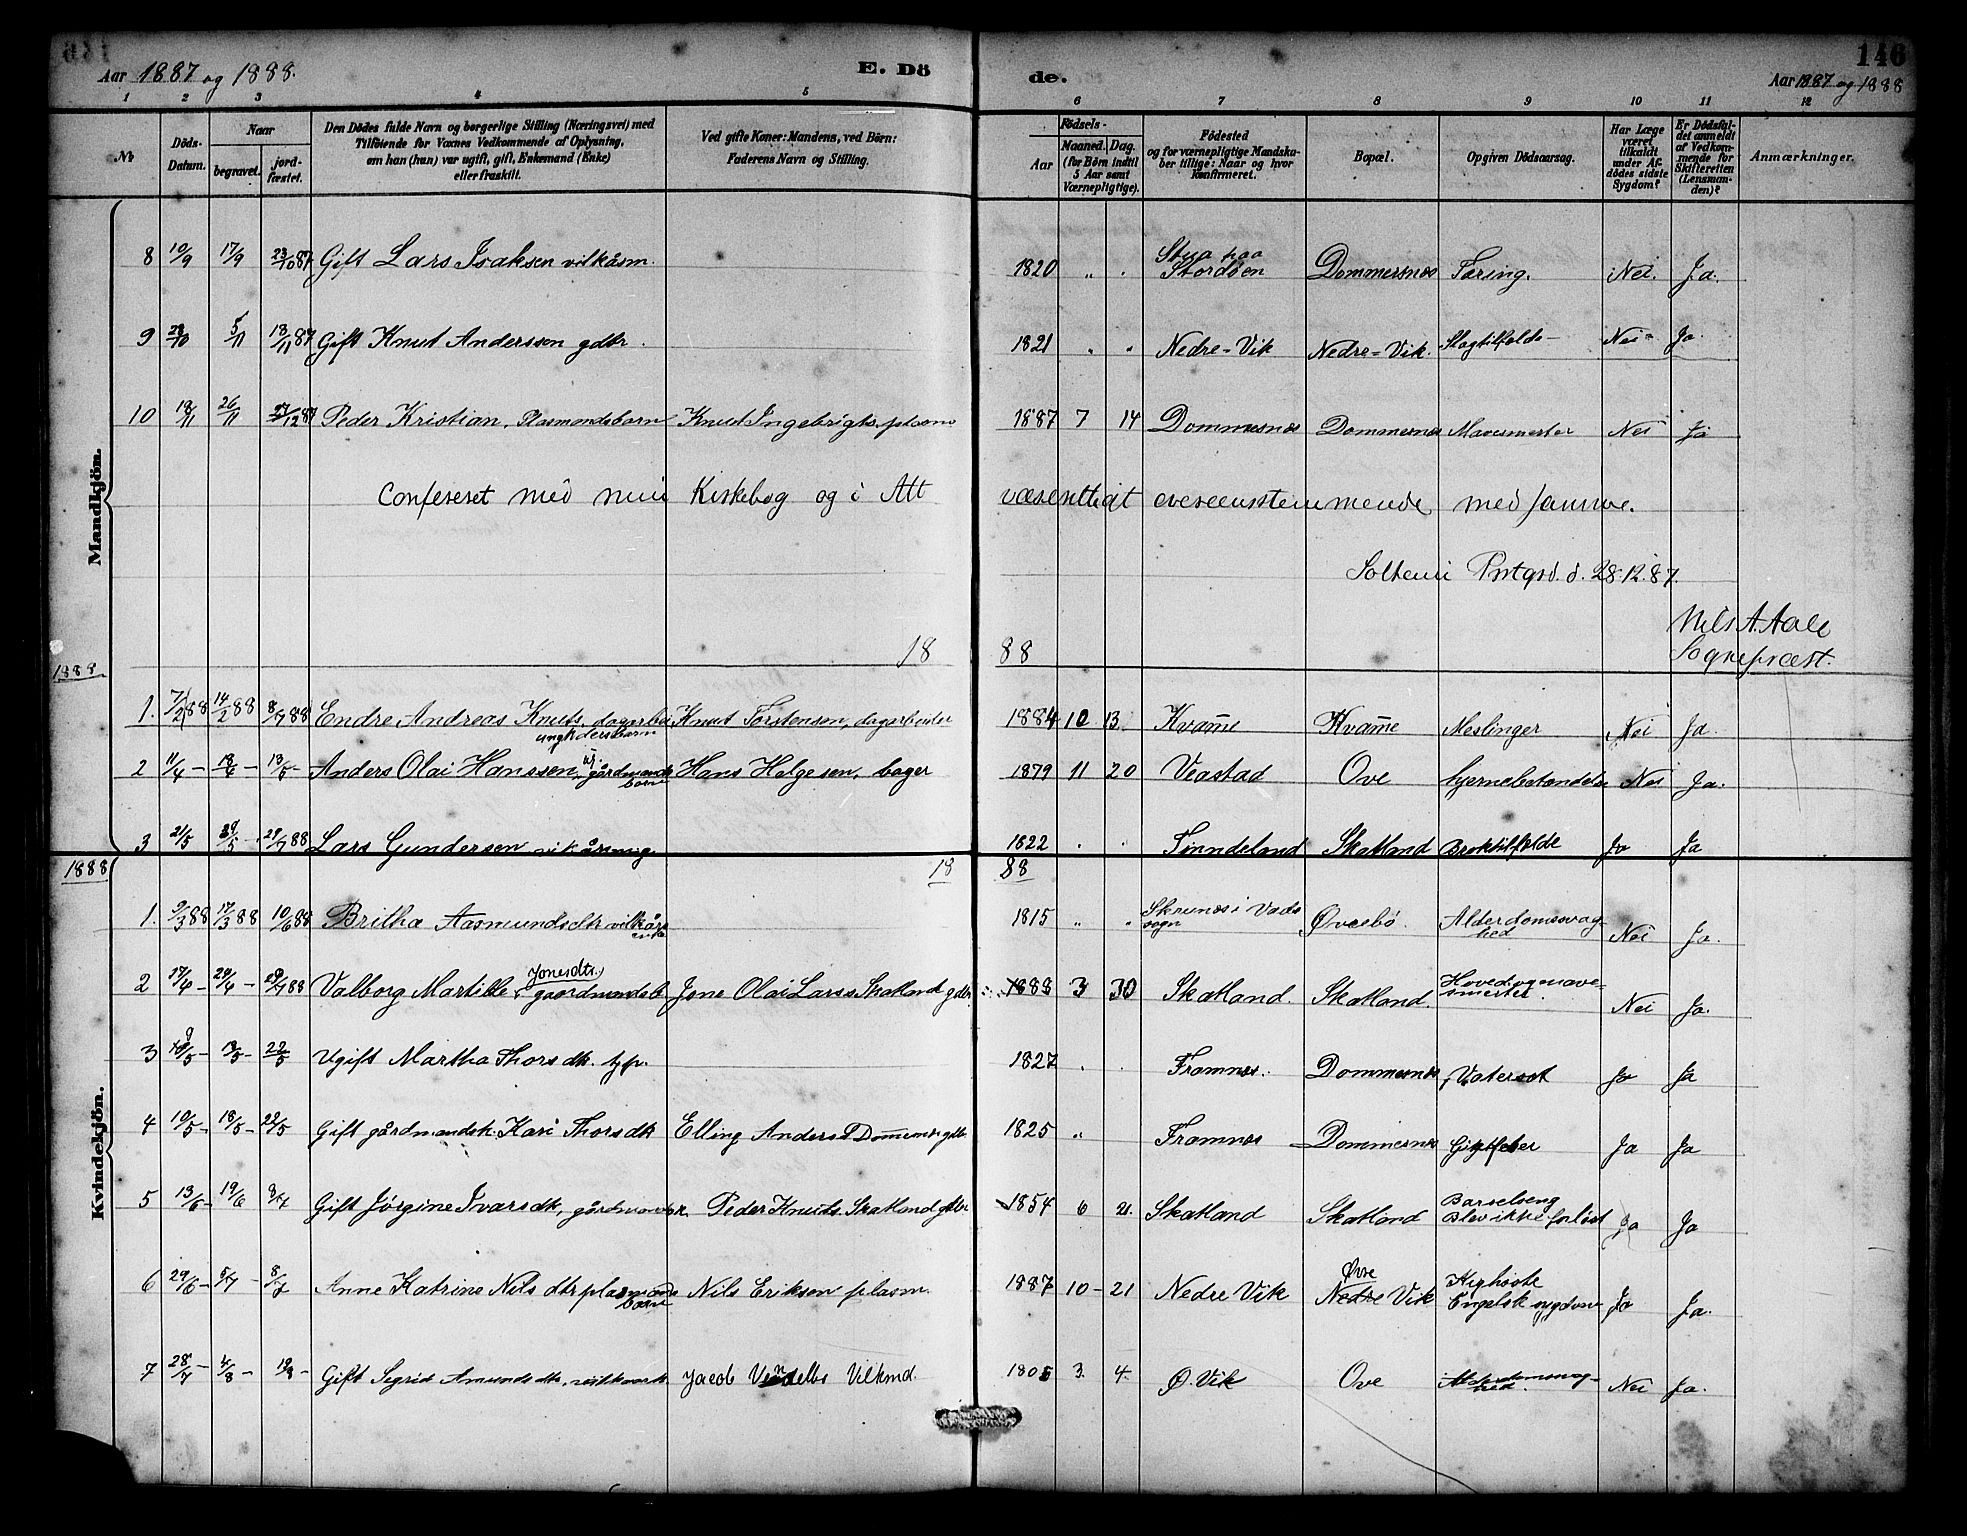 Aar 1887 og 1888. E. Dö de. 146
Aar 1887 og 1888
1 2 3 4 5 6 7 8 9 10 11 12
No
Döds-Datum.
Naar
begravet.
jord-fæstet.
Den Dödes fulde Navn og borgerlige Stilling (Næringsvei) med
Tilföiende for Vaxnes Vedkommende af Oplysning,
om han (hun) var ugift, gift, Enkemand (Enke)
eller fraskilt.
Ved gifte Koner: Mandens, ved Börn:
Faderens Navn og Stilling.
Födsels-
Aar
Maaned. Dag.
(for Börn indtil
5 Aar samt
Værnepligtige).
Födested
og for værnepligtige Mandska-
ber tillige: Naar og hvor
Konfirmeret.
Bopæl.
Opgiven Dödsaarsag.
Har Læge
været
tilkaldt
under Af-
dödes sidste
Sygdom?
Er Dödsfal-
det anmeldt
af Vedkom-
mende for
Skifteretten
(Lensman-
den)?
Anmærkninger.
Mandkjön.
8 10/9 17/9 23/10 87 Gift Lars Isaksen vilkåsm. 1820 " " Stua paa Stordøen Dommersnes Tæring. Nei. Ja.
9 28/10 5/11 18/11 87 Gift Knut Anderssen gdbr. 1821 " " Nedre-Vik Nedre-Vik. Slagtilfælde Nei Ja.
10 19/11 26/11 27/12 87 Peder Kristian, Plasmandsbarn Knut Ingebrigts. plasm 1887 7 14 Dommesnes Dommersnes Mavesmerter Nei Ja
Confereret med min Kirkebog og i Alt væsentligt overeensstemmende med samme.
Søltemi Prstgrd. d. 28.12.87.
Nils A. Aale
Sognepræst.
18 88
1888
1. 7/2 88 14/2 88 8/7 88 Endre Andreas Knuts. dagarbei Knut Torstensen, dagarbeider 1884 10 13 Kvam̄e Kvam̄e Meslinger Nei Ja
2 11/4 - 18/4 - 13/5 - Anders Olai Hanssen, gårdmands barn Hans Helgesen, bager 1879 11 20 Veastad Ove hjernebetændelse Nei Ja.
3 21/5 29/5 29/7 88 Lars Gundersen vikårsmig. 1822 " " Tinndeland Skatland Broktilfælde Ja Ja
1888 18 88
Kvindekjön.
1. 9/3 88 17/3 88 10/6 88 Britha Aasmundsdtr vilkårs enke 1815 " " Skrunes i Vads sogn Øvrebø. Alderdomssvag-hed Nei Ja.
2 17/4 - 24/4 - 29/7 88 Valborg Martille Jonesdtr. gaardmandsb Jone Olai Larss. Skatland gdbr. 1888 3 30 Skatland. Skatland. Hoved og mave-smerter. Nei Ja.
3 9/5 - 18/5 - 22/5 Ugift Martha Thorsdtr. 1827 " " Framnes. Dommersnes Vatersot Ja Ja
4 10/5 - 18/5 - 22/5 Gift gårdmandsk. Kari Thorsdtr Elling Anders Dom̄ersnes gdbr. 1825 " Framnes Dommersnes Gigtfeber Ja Ja
5 13/6 - 19/6 8/7 Gift Jørgine Ivarsdtr, gårdmandsk. Peder Knuts. Skatland gdbr 1854 6 21. Skatland Skatland Barselseng Blev ikke forløst Ja Ja
6 29/6 - 5/7 - 8/7 Anne Katrine Nilsdtr plasmands barn Nils Eriksen plasm. 1887 10 - 21 Nedre Vik Øvre Nedre Vik Kighoste Engelsk sygdom Ja Ja.
7 28/7 - 4/8 - 19/8 - Gift Sigrid Amundsdtr. Jacob Vilkmd. 1805 3. 4. Ø. Vik Ove Alderdomssvag-hed. Nei Ja.